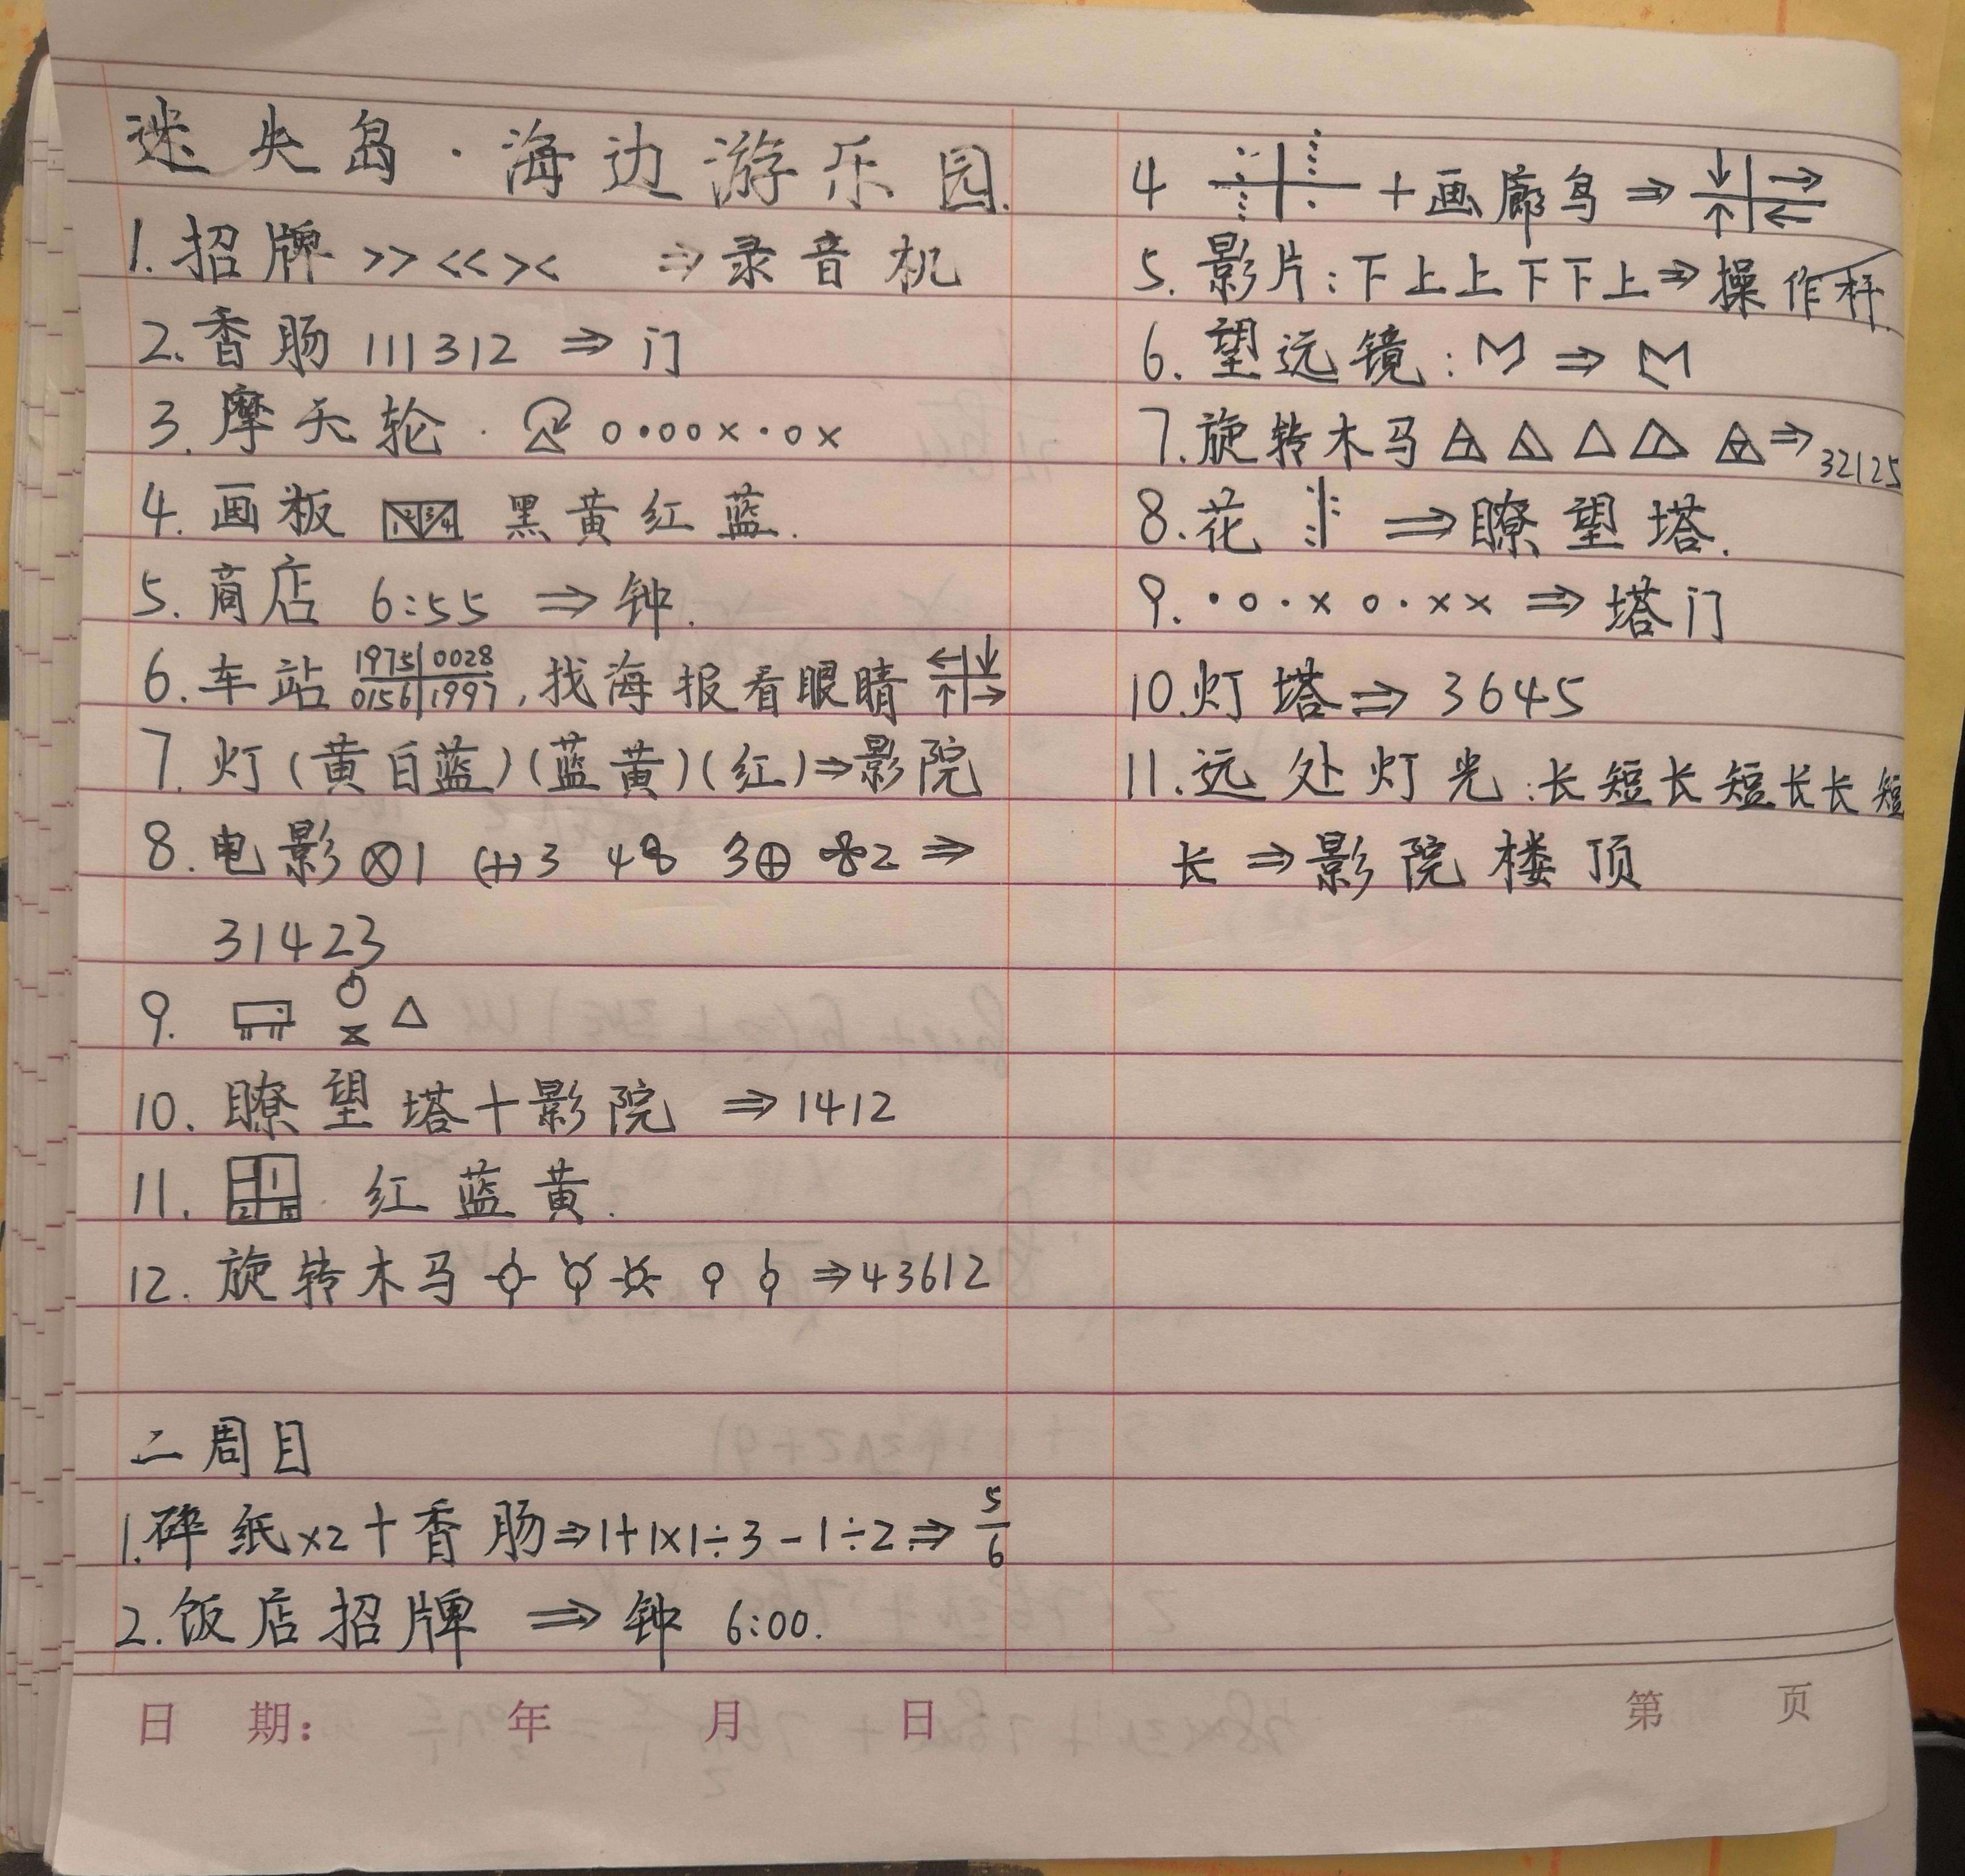 迷失岛·海边游乐园.
1. 招牌 >> << >< ⇒ 录音机
2. 香肠 111312 ⇒ 门
3. 摩天轮. o • o o x • o x
4. 画板 黑黄红蓝.
5. 商店 6:55 ⇒ 钟.
6. 车站 1975 0028 0156 1997, 找海报看眼睛 ← ↓ ↑ →
7. 灯(黄白蓝)(蓝黄)(红)⇒影院
8. 电影 ⊗1 3 4 3⊕ 2 ⇒
31423
9. △
10. 瞭望塔+影院 ⇒ 1412
11. 红蓝黄.
12. 旋转木马 ⇒ 43612
二周目
1. 碎纸x2+香肠⇒1+1x1÷3-1÷2⇒5/6
2. 饭店招牌 ⇒ 钟 6:00.
4 +画廊鸟 ⇒ ↓ → ↑ ←
5. 影片:下上上下下上⇒操作杆.
6. 望远镜: ⇒
7. 旋转木马 ⇒ 32125
8. 花 ⇒ 瞭望塔.
9. • o • x o • x x ⇒ 塔门
10. 灯塔 ⇒ 3645
11. 远处灯光:长短长短长长短
长 ⇒ 影院楼顶
日 期: 年 月 日
第 页